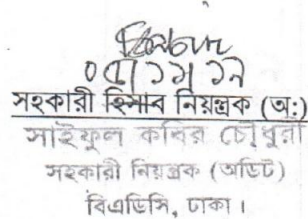 সহকারী হিসাব নিয়ন্ত্রক (অ:)
সাইফুল কবির চৌধুরী
সহকারী নিয়ন্ত্রক (অডিট)
বিএডিসি, ঢাকা।